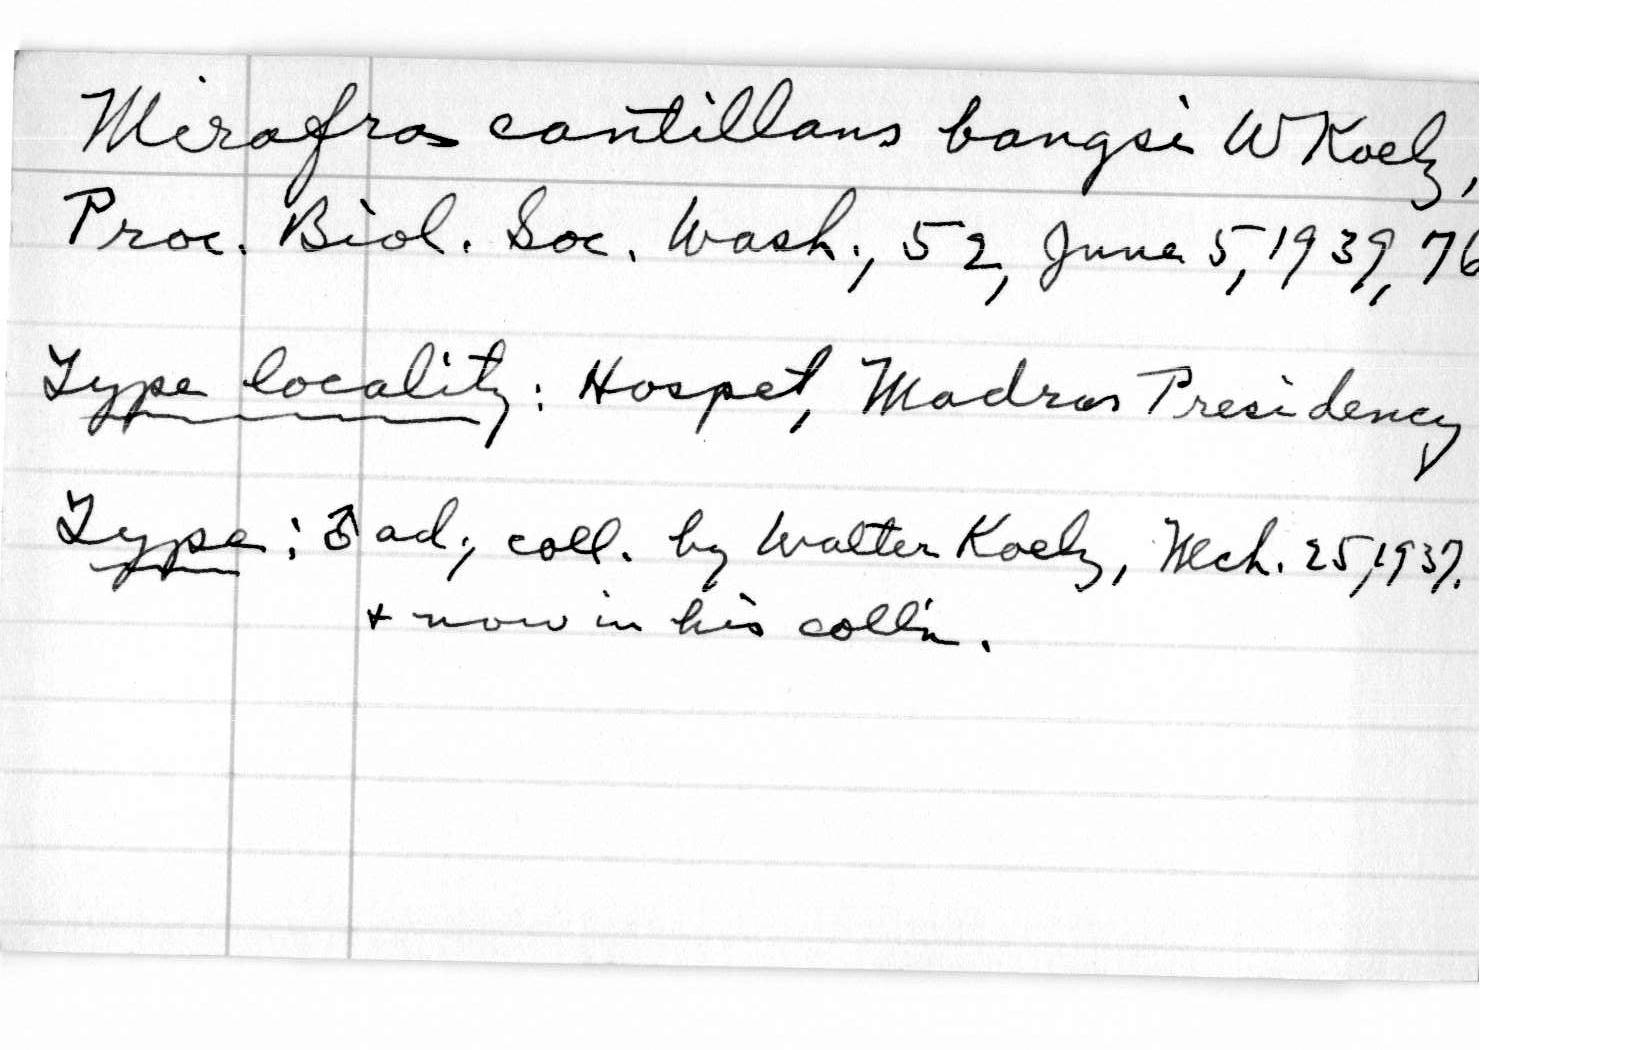 Mirafra cantillans bangsi W Koelz,
Proc. Biol. Soc. Wash., 52, June 5, 1939, 76
Type locality: Hospet, Madras Presidency
Type: ♂ ad., coll. by Walter Koelz, Mch. 25, 1937.
+ now in his coll'n.